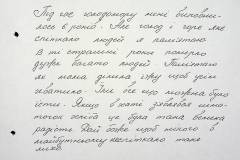 Під час голодомору мені виповни-
лося 8 років. Але голод і горе яке
спіткало людей я пам'ятаю.
В ті страшені роки померло
дуже багато людей. Пам'ятаю
як мама ділила їжу щоб усім
хватило. Їли все що можна було
їсти. Якщо в хаті з'являвся шма-
ток хліба це була така велика
радість. Дай боже щоб нікого в
майбутньому не спіткало таке
лихо.